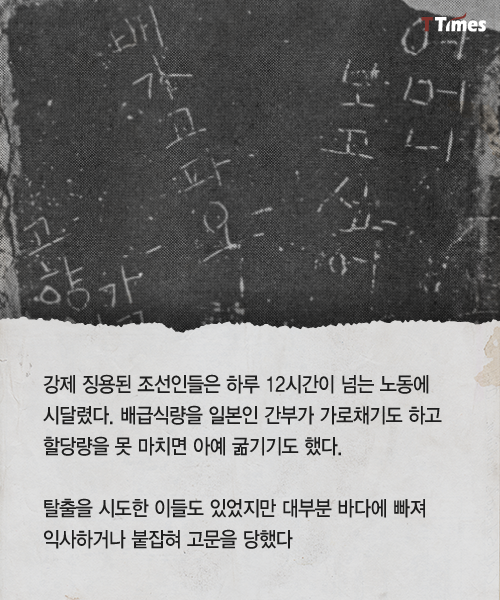 TTimes
어머니
보고싶어
배가고파요
고향
가
강제 징용된 조선인들은 하루 12시간이 넘는 노동에
시달렸다. 배급식량을 일본인 간부가 가로채기도 하고
할당량을 못 마치면 아예 굶기기도 했다.
탈출을 시도한 이들도 있었지만 대부분 바다에 빠져
익사하거나 붙잡혀 고문을 당했다